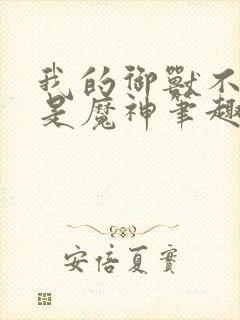 我的御獸不
是魔神筆趣
安倍夏實